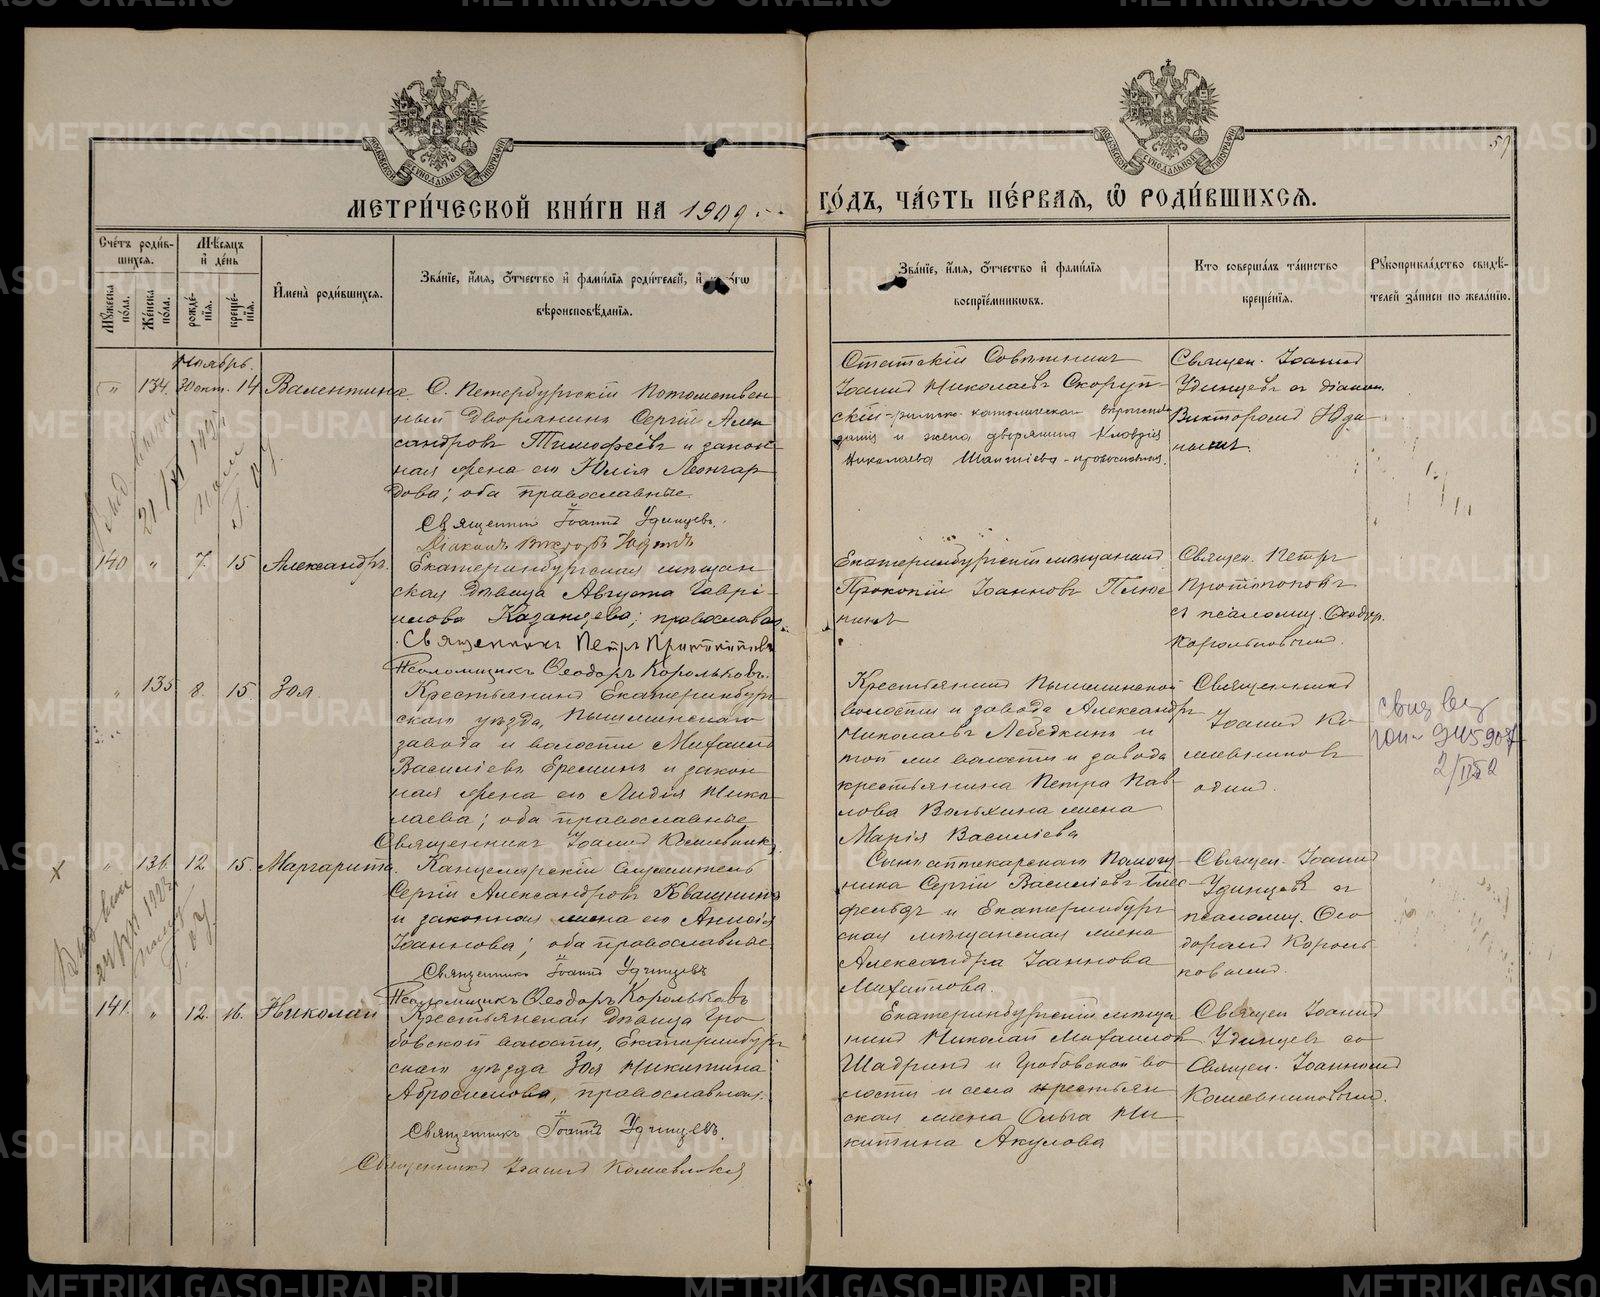 МЕТРИ́ЧЕСКОЙ КНИ́ГИ НА 1909
ГО́ДЪ, ЧА́СТЬ ПЕ́РВАЯ, Ѡ҆ РОДИ́ВШИХСЯ.
59
Сче́тъ роди́в-
шихся.
Мꙋ́жеска по́ла.
Же́нска по́ла.
Мѣ́сяцъ и҆ де́нь
рожде́-нїя.
креще́-нїя.
И҆мена̀ роди́вшихся.
Зва́нїе, и҆́мя, ѻ҆́тчество и҆ фами́лїя роди́телей, и҆
вѣроисповѣ́данїя.
Зва́нїе, и҆́мя, ѻ҆́тчество и҆ фами́лїя
воспрїе́мникѡвъ.
Кто̀ соверша́лъ та́инство
креще́нїя.
Рꙋкоприкла́дство свидѣ́-
телей за́писи по жела́нїю.
Ноябрь.
" 134. 30 окт. 14 Валентина.
С. Петербургскій Потомствен-
ный Дворянинъ Сергій Алек
сандровъ Тимофеевъ и закон
ная жена его Юлія Леонгар
дова; оба православные.
Священникъ Іоаннъ Удинцевъ.
Діаконъ Викторъ Юдинъ
Статскій Совѣтникъ
Іоаннъ Николаевъ Скоруп
скій - римско-католическаго вѣроисповѣ
данія и жена дворянина Клавдія
Николаева - православная.
Священ. Іоаннъ
Удинцевъ съ діакон.
Викторомъ Юди
нымъ.
140 " 7. 15 Александръ.
Екатеринбургская мѣщан
ская дѣвица Августа Гаврі-
илова Казанцева; православная.
Священникъ Петръ Протопоповъ
Псаломщикъ Ѳеодоръ Корольковъ.
Екатеринбургскій мѣщанинъ
Прокопій Іоанновъ Плюс
нинъ
Священ. Петръ
Протопоповъ
съ псаломщ. Ѳеодор.
Корольковымъ.
" 135 8. 15. Зоя.
Крестьянинъ Екатеринбург
скаго уѣзда, Пышминскаго
завода и волости Михаилъ
Василіевъ Ереминъ и закон
ная жена его Лидія Нико
лаева; оба православные
Священникъ Іоаннъ
Крестьянинъ Пышминской
волости и завода Александръ
Николаевъ Лебедкинъ и
той же волости и завода
крестьянина Петра Пав-
лова Вольхина жена
Марія Василіева
Священникъ
Іоаннъ Ко
жевниковъ
одинъ.
2/II 52
" 136. 12 15. Маргарита.
Канцелярскій служитель
Сергій Александровъ Квашнинъ
и законная жена его Анисія
Іоаннова; оба православные.
Священникъ Іоаннъ Удинцевъ
Псаломщикъ Ѳеодоръ Корольковъ
Сынъ аптекарскаго помощ
ника Сергій Василіевъ
фельдъ и Екатеринбург
ская мѣщанская жена
Александра Іоаннова
Михайлова.
Священ. Іоаннъ
Удинцевъ съ
псаломщ. Ѳео
доромъ Король
ковымъ.
141. " 12. 16. Николай
Крестьянская дѣвица Гро
бовской волости, Екатеринбург
скаго уѣзда Зоя Никитина
Абросимова, православная.
Священникъ Іоаннъ Удинцевъ.
Священникъ Іоаннъ Кожевниковъ
Екатеринбургскій мѣща
нинъ Николай Михаиловъ
Шадринъ и Гробовской во
лости и села крестьян
ская жена Ольга Ни
китина Акулова
Священ. Іоаннъ
Удинцевъ со
Священ. Іоанномъ
Кожевниковымъ.
METRIKI.GASO-URAL.RU